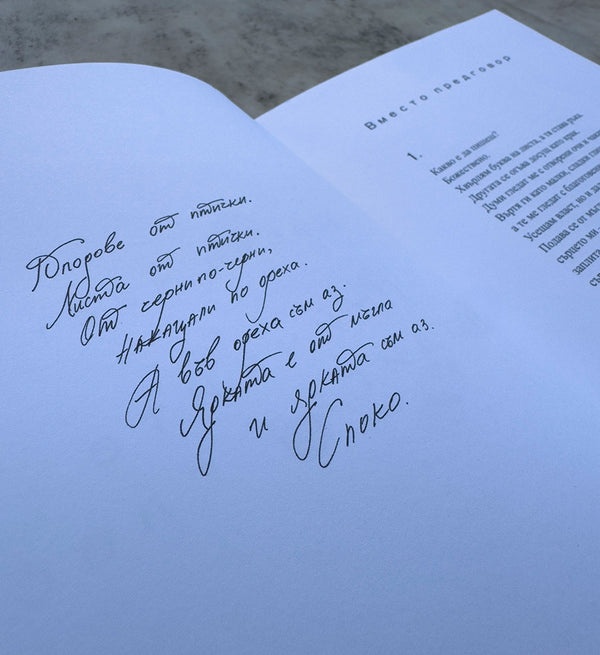 от птички.
Листа от птички.
От черни по-черни,
накацали по ореха.
А във ореха съм аз.
Ярката е от мъгла
и ярката съм аз.
Споко.
Вместо предговор
1.
Какво е да пишеш?
Божествено.
Хвърлям буква на листа, а тя става ръка.
Другата се досущ като крак.
Думи гледат ме с отворени очи и
Въртя ги като малки, сладки
а те ме гледат с
Усещам власт, но и
Подава се от
сърцето ми -